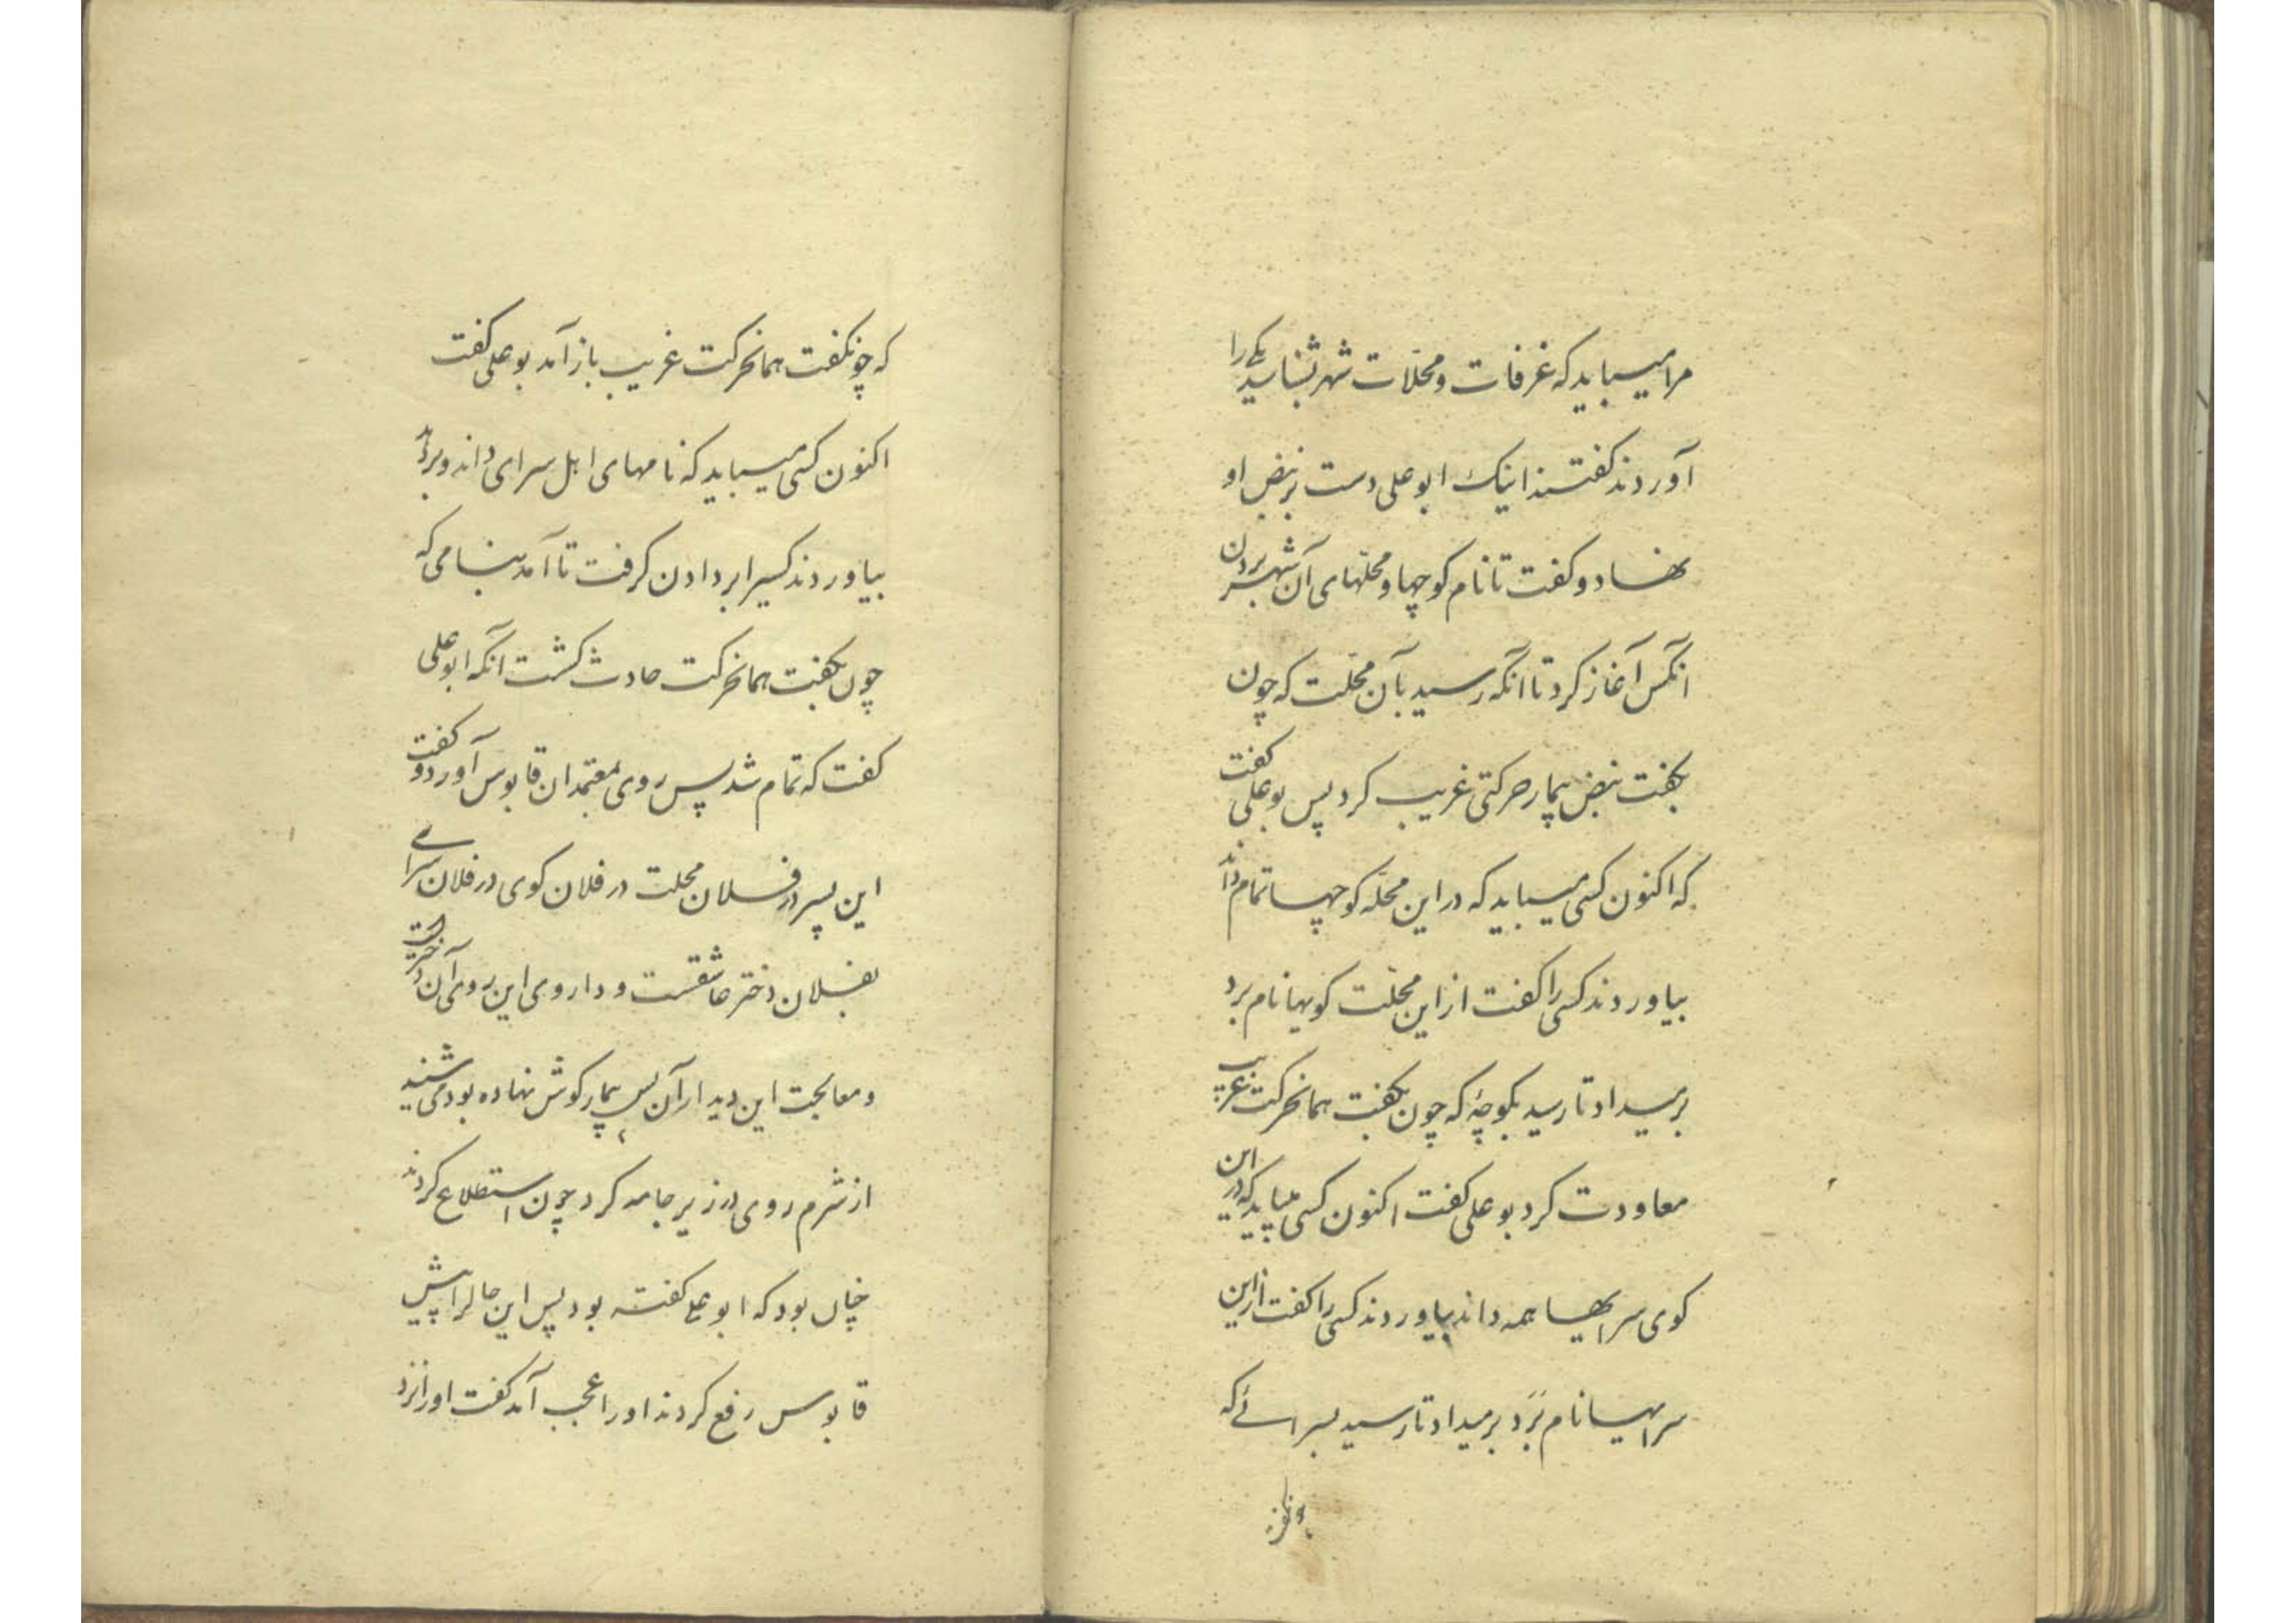 مرا میباید که غرفات و محلات شهر بشناسد یکی را
آوردند گفتند اینک ابو علی دست بر نبض او
نهاد و گفت تا نام کوچها و محلهای آن شهر بردن
انکس آغاز کرد تا آنکه رسید بآن محلت که چون
بگفت نبض بیمار حرکتی غریب کرد پس بو علی گفت
که اکنون کسی میباید که در این محله کوچها تمام داند
بیاوردند کسی را گفت از این محلت کویها نام برد
بر میداد تا رسید بکوچۀ که چون بگفت همانحرکت غریب
معاودت کرد بو علی گفت اکنون کسی میباید که در این
کوی سرایها همه داند بیاوردند کسی را گفت از این
سرایها نام برد بر میداد تا رسید بسرائے که
که چونگفت همانحرکت غریب باز آمد بو علی گفت
اکنون کسی میباید که نامهای اهل سرای داند و برد
بیاوردند کسیرا بر دادن گرفت تا آمد بنامی که
چون بگفت همانحرکت حادث گشت آنگه ابو علی
گفت که تمام شد پس روی بمعتمدان قابوس آورد و گفت
این پسر در فلان محلت در فلان کوی در فلان سرای
بفلان دختر عاشقست و داروی این روی آن دختر است
و معالجت این دیدار آن پس بیمار گوش نهاده بود می شنید
از شرم روی در زیر جامه کرد چون استطلاع کردند
چنان بود که ابو علی گفته بود پس این حالرا پیش
قابوس رفع کردند او را عجب آمد گفت او را نزد